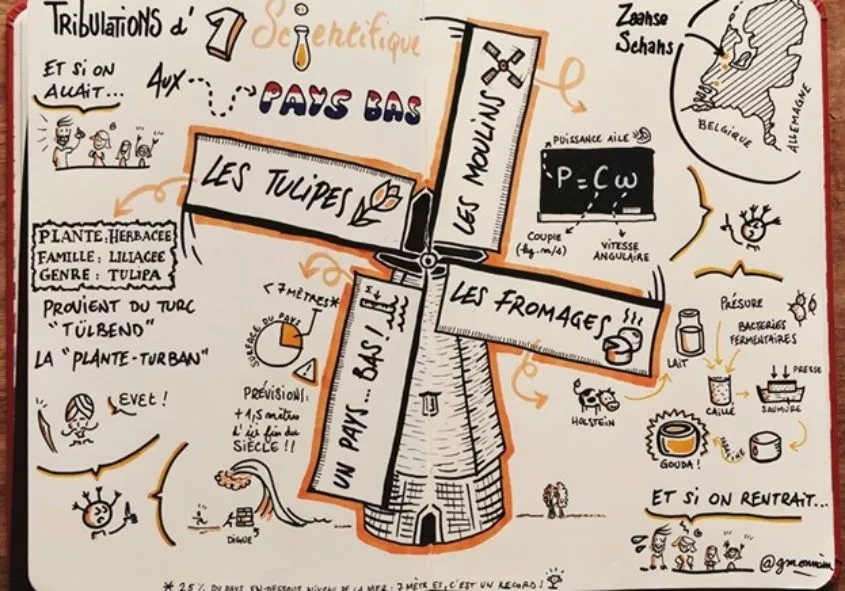 TRIBULATIONS d'1 Scientifique
AUX PAYS BAS
ET SI ON
ALLAIT...
Zaanse
Schans
BELGIQUE
ALLEMAGNE
LES TULIPES
LES MOULINS
LES FROMAGES
UN PAYS... BAS!
PLANTE: HERBACÉE
FAMILLE: LILIACEE
GENRE: TULIPA
PROVIENT DU TURC
"TÜLBEND"
LA "PLANTE-TURBAN"
EVET!
< 7 MÈTRES*
SURFACE DU PAYS
PRÉVISIONS:
+1,5 mètres
d'ici fin du
SIÈCLE !!
DIGUES
PUISSANCE AILE
P = C ω
COUPLE
VITESSE
ANGULAIRE
PRÉSURE
BACTERIES
FERMENTAIRES
LAIT
PRESSE
CAILLÉ
SAUMURE
HOLSTEIN
GOUDA!
ET SI ON RENTRAIT...
* 25% DU PAYS EN-DESSOUS NIVEAU DE LA MER: 7 MÈTRES, C'EST UN RECORD!